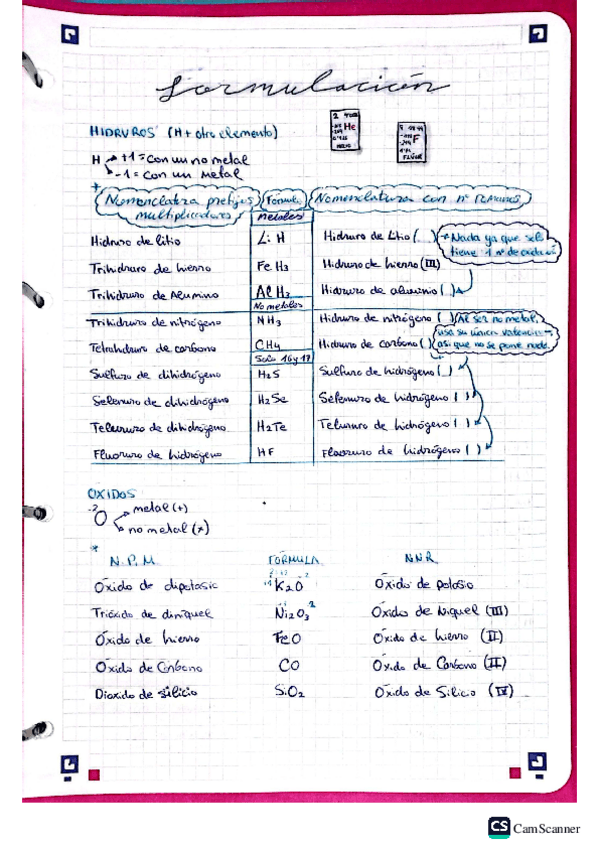 formulación
2 4'00
He
HELIO
9 18'99
F
FLÚOR
HIDRUROS (H + otro elemento)
H +1 = con un no metal
-1 = con un metal
Nomenclatura prefijos multiplicadores
Fórmula
Nomenclatura con nº romanos
metales
Hidruro de litio Li H Hidruro de Litio ( ) Nada ya que solo tiene 1 nº de
Trihidruro de hierro Fe H3 Hidruro de hierro (III)
Trihidruro de Alumino Al H3 Hidruro de aluminio ( )
No metales
Trihidruro de nitrógeno NH3 Hidruro de nitrógeno ( ) Al ser no metal
usa su única valencia
Tetrahidruro de carbono CH4 Hidruro de carbono ( ) asi que no se pone nada
Solo 16 y 17
Sulfuro de dihidrógeno H2S Sulfuro de hidrógeno ( )
Selenuro de dihidrógeno H2Se Selenuro de hidrógeno ( )
Telururo de dihidrógeno H2Te Telururo de hidrógeno ( )
Fluoruro de hidrógeno HF Fluoruro de hidrógeno ( )
OXIDOS
-2
O metal (+)
no metal (+)
N.P.M. FORMULA NNR
Óxido de dipotasio K2O Óxido de potasio
Trióxido de diniquel Ni2O3 Óxido de Niquel (III)
Óxido de hierro FeO Óxido de hierro (II)
Óxido de Carbono CO Óxido de Carbono (II)
Dioxido de silicio SiO2 Óxido de Silicio (IV)
CS CamScanner